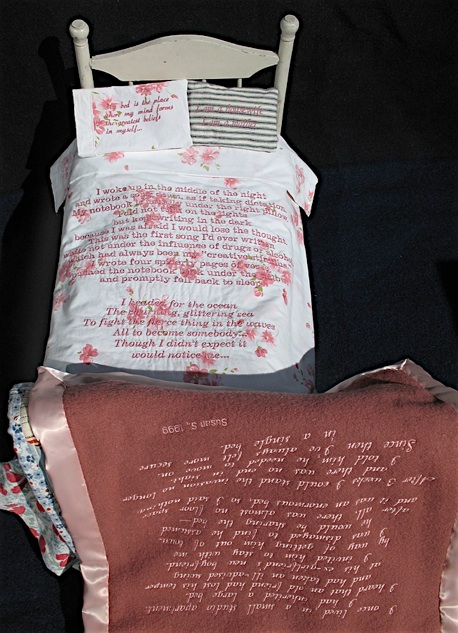 bed is the place
where my mind forms
the greatest beliefs
in myself...
I am a housewife
I am a
I woke up in the middle of the night
and wrote a as if taking dictation.
My notebook under the right pillow
I did not turn on the lights
but kept writing in the dark
because I was afraid I would lose the thought.
This was the first song I'd ever written
while not under the influence of drugs or alcohol
which had always been my "creative
I wrote four spidery pages of verse
pushed the notebook back under the
and promptly fell back to sleep
I headed for the ocean
The churning, glittering sea
To fight the fierce thing in the waves
All to become somebody...
Though I didn't expect it
would notice me...
I once lived in a small studio apartment.
inherited a large bed
I heard that an old friend had lost his temper
and had taken an ill-advised swing
at his ex-girlfriend's new boyfriend.
I invited him to stay with me
by way of getting him out of town.
I was dismayed he assumed
he would be sharing the bed—
after all there was almost no floor space
and it was an enormous bed. I said nothing
After 3 weeks I could stand the invasion no longer
and there was no end in sight.
I told him he needed to move on
Since then I've always felt more secure
in a single bed.
Susan S, 1999